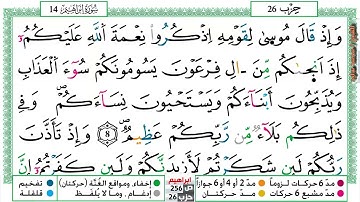 حِزْب 26
سُورَةُ إِبْرَاهِيمَ 14
وَإِذْ قَالَ مُوسَىٰ لِقَوْمِهِ اِذْكُرُوا نِعْمَةَ اَللَّهِ عَلَيْكُمُۥ
إِذْ أَنجَىٰكُم مِّنَ اٰلِ فِرْعَوْنَ يَسُومُونَكُمْ سُوٓءَ اَلْعَذَابِ
وَيُذَبِّحُونَ أَبْنَآءَكُمْ وَيَسْتَحْيُونَ نِسَآءَكُمْ وَفِي
ذَٰلِكُم بَلَآءٌ مِّن رَّبِّكُمْ عَظِيمٌ 8 وَإِذْ تَأَذَّنَ
رَبُّكُمْ لَئِن شَكَرْتُمْ لَأَزِيدَنَّكُمْ وَلَئِن كَفَرْتُمُۥ إِنَّ
مدّ 6 حركات لزوماً مدّ 2 أو 4 أو 6 جوازاً
مدّ مشبع 6 حركات مدّ حركتان
ابراهيم
ص 256
حزب 26
إخفاء، ومواقع الغُنَّة (حركتان) تفخيم
إدغام، وما لا يُلفَظ قلقلة